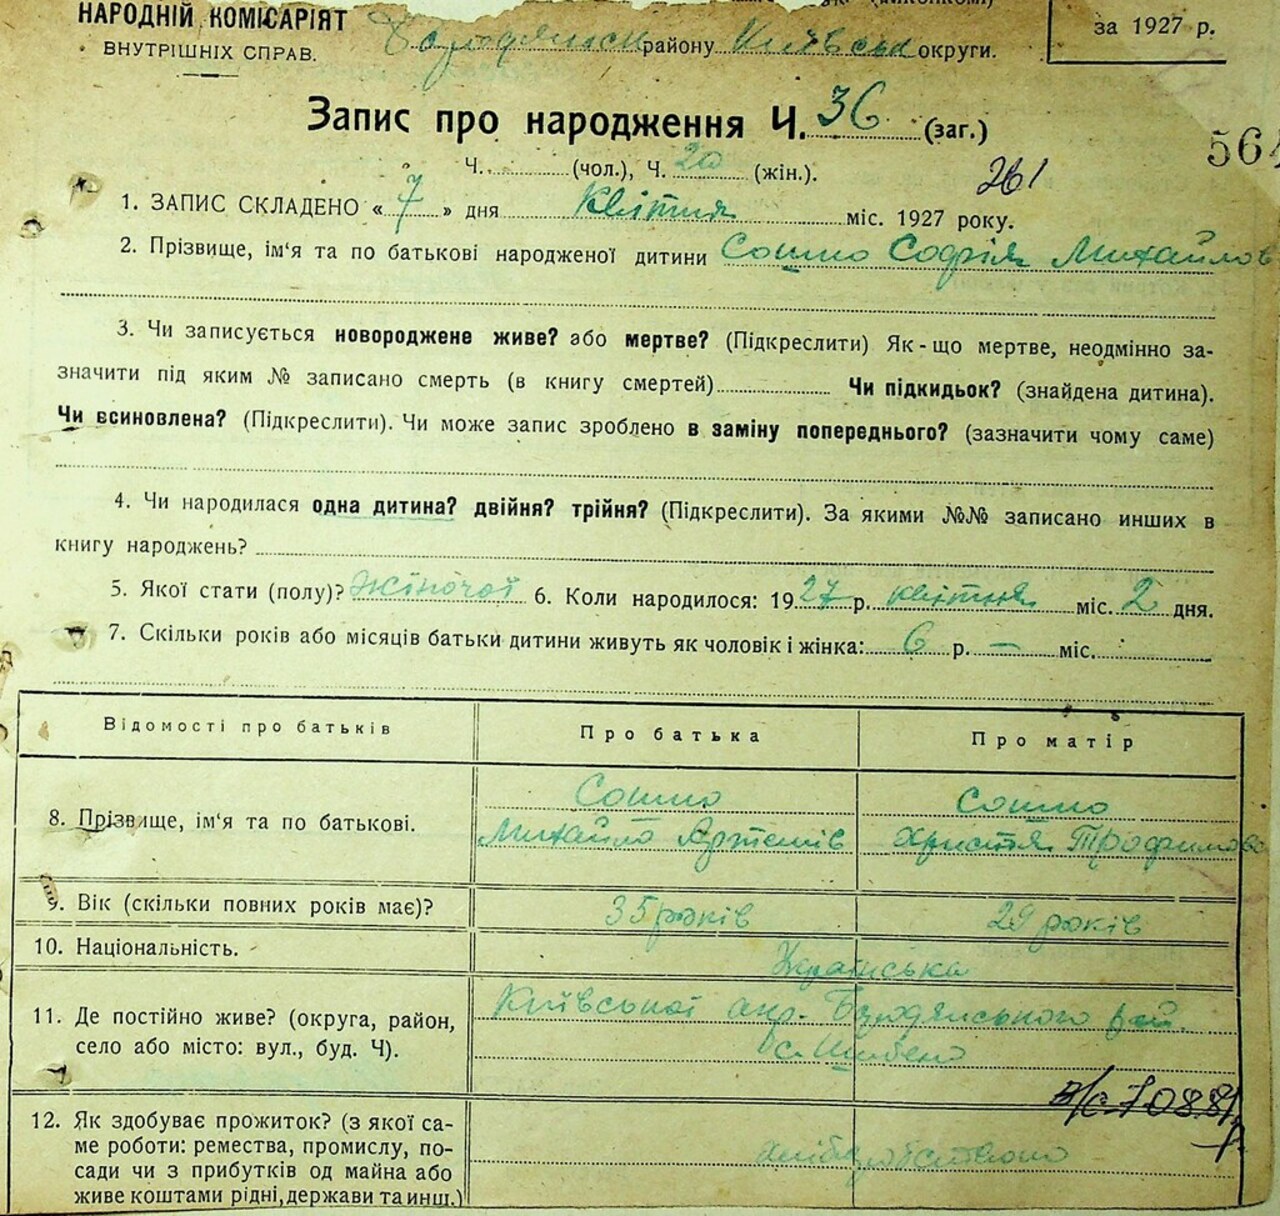 НАРОДНІЙ КОМІСАРІЯТ
ВНУТРІШНІХ СПРАВ.
району Київськ округи.
за 1927 р.
Запис про народження Ч. 36 (заг.)
564
Ч. (чол.), Ч. 20 (жін.).
261
1. ЗАПИС СКЛАДЕНО « 7 » дня Квітня міс. 1927 року.
2. Прізвище, ім‘я та по батькові народженої дитини Сошко Софія Михайлов
3. Чи записується новороджене живе? або мертве? (Підкреслити) Як-що мертве, неодмінно за-
значити під яким № записано смерть (в книгу смертей) Чи підкидьок? (знайдена дитина).
Чи всиновлена? (Підкреслити). Чи може запис зроблено в заміну попереднього? (зазначити чому саме)
4. Чи народилася одна дитина? двійня? трійня? (Підкреслити). За якими №№ записано инших в
книгу народжень?
5. Якої стати (полу)? Жіночої 6. Коли народилося: 1927 р. квітня міс. 2 дня.
7. Скільки років або місяців батьки дитини живуть як чоловік і жінка: 6 р. — міс.
Відомості про батьків Про батька Про матір
8. Прізвище, ім‘я та по батькові.
Сошко
Михайло Артемів
Сошко
Христя Трофимово
9. Вік (скільки повних років має)? 35 років 29 років
10. Національність. Українська
11. Де постійно живе? (округа, район,
село або місто: вул., буд. Ч).
Київської окр. Бородянського рай.
с. Шибено
12. Як здобуває прожиток? (з якої са-
ме роботи: ремества, промислу, по-
сади чи з прибутків од майна або
живе коштами рідні, держави та инш.)
хліборобством